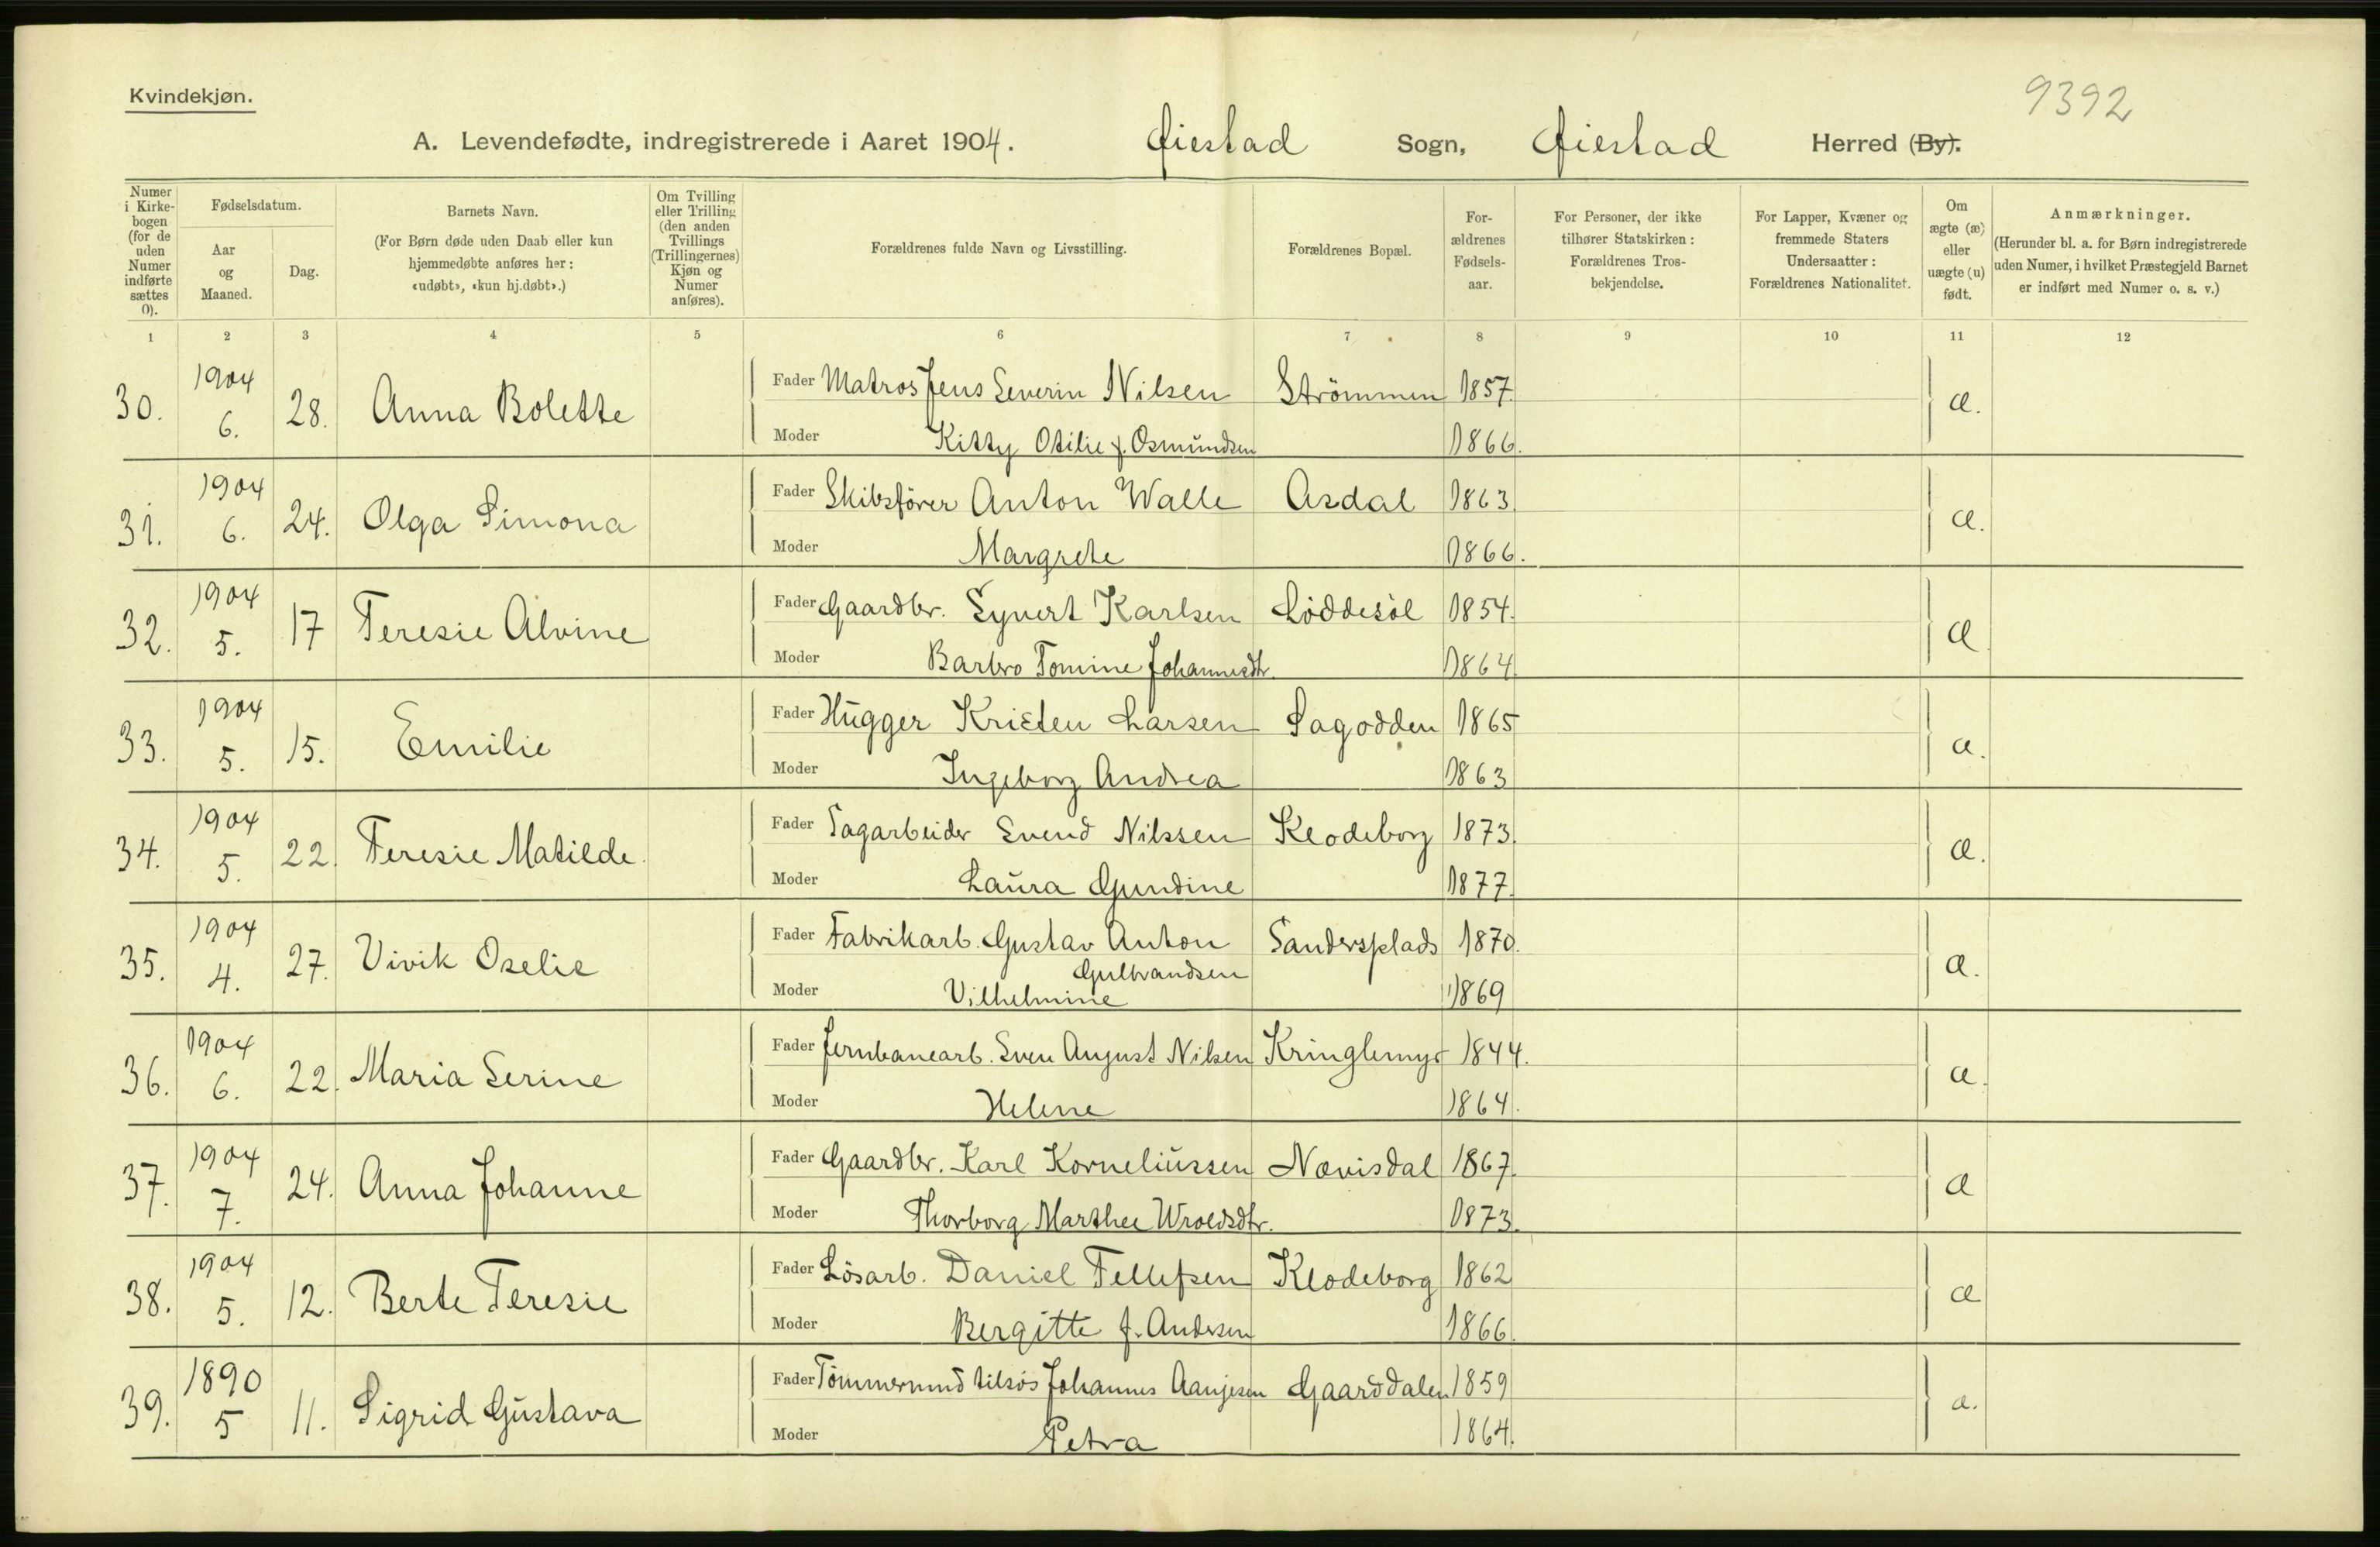 Kvindekjøn.
9392
A. Levendefødte, indregistrerede i Aaret 1904. Øiestad Sogn, Øiestad Herred (By).
Numer i Kirkebogen (for de uden Numer indførte sættes 0).
Fødselsdatum.
Aar og Maaned.
Dag.
Barnets Navn.
(For Børn døde uden Daab eller kun hjemmedøbte anføres her: «udøbt», «kun hj.døbt».)
Om Tvilling eller Trilling (den anden Tvillings (Trillingernes) Kjøn og Numer anføres).
Forældrenes fulde Navn og Livsstilling.
Forældrenes Bopæl.
For-ældrenes Fødsels-aar.
For Personer, der ikke tilhører Statskirken: Forældrenes Tros-bekjendelse.
For Lapper, Kvæner og fremmede Staters Undersaatter: Forældrenes Nationalitet.
Om ægte (æ) eller uægte (u) født.
Anmærkninger.
(Herunder bl. a. for Børn indregistrerede uden Numer, i hvilket Præstegjeld Barnet er indført med Numer o. s. v.)
1 2 3 4 5 6 7 8 9 10 11 12
30. 1904 6. 28. Anna Bolette Fader Matros Jens Severin Nilsen Strömmen 1857. æ.
Moder Kitty Otilie f. Osmundsen 1866.
31. 1904 6. 24. Olga Simona Fader Skibsförer Anton Walle Asdal 1863 æ.
Moder Margrete 1866.
32. 1904 5. 17 Teresie Alvine Fader Gaardbr. Syvert Karlsen Löddesöl 1854. æ
Moder Barbro Tomine Johannesdtr. 1864
33. 1904 5. 15. Emilie Fader Hugger Kristen Larsen Sagodden 1865 æ.
Moder Ingeborg Andrea 1863
34. 1904 5. 22. Teresie Matilde. Fader Sagarbeider Svend Nilssen Klodeborg 1873. æ.
Moder Laura Gundine 1877.
35. 1904 4. 27. Vivik Oselie Fader Fabrikarb. Gustav Anton Gulbrandsen Sandersplads 1870. æ.
Moder Vilhelmine 1869
36. 1904 6. 22. Maria Serine Fader Jernbanearb. Sven August Nilsen Kringlemyr 1844. æ.
Moder Helene 1864.
37. 1904 7. 24. Anna Johanne Fader Gaardbr. Karl Korneliussen Nævisdal 1867. æ
Moder Thorborg Marthee Wroldsdtr. 1873.
38. 1904 5. 12. Berte Teresie Fader Lösarb. Daniel Tellefsen Klodeborg 1862 æ
Moder Bergitte f. Andersen 1866.
39. 1890 5 11. Sigrid Gustava Fader Tömmermd tilsös Johannes Aanjesen Gaarddalen 1859 æ.
Moder Petra 1864.